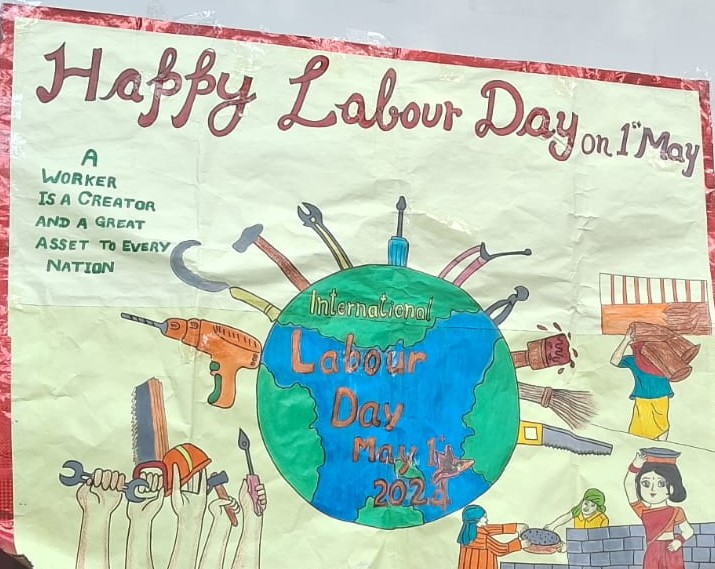 Happy Labour Day on 1st May
A
WORKER
IS A CREATOR
AND A GREAT
ASSET TO EVERY
NATION
International
Labour
Day
May 1st
2024